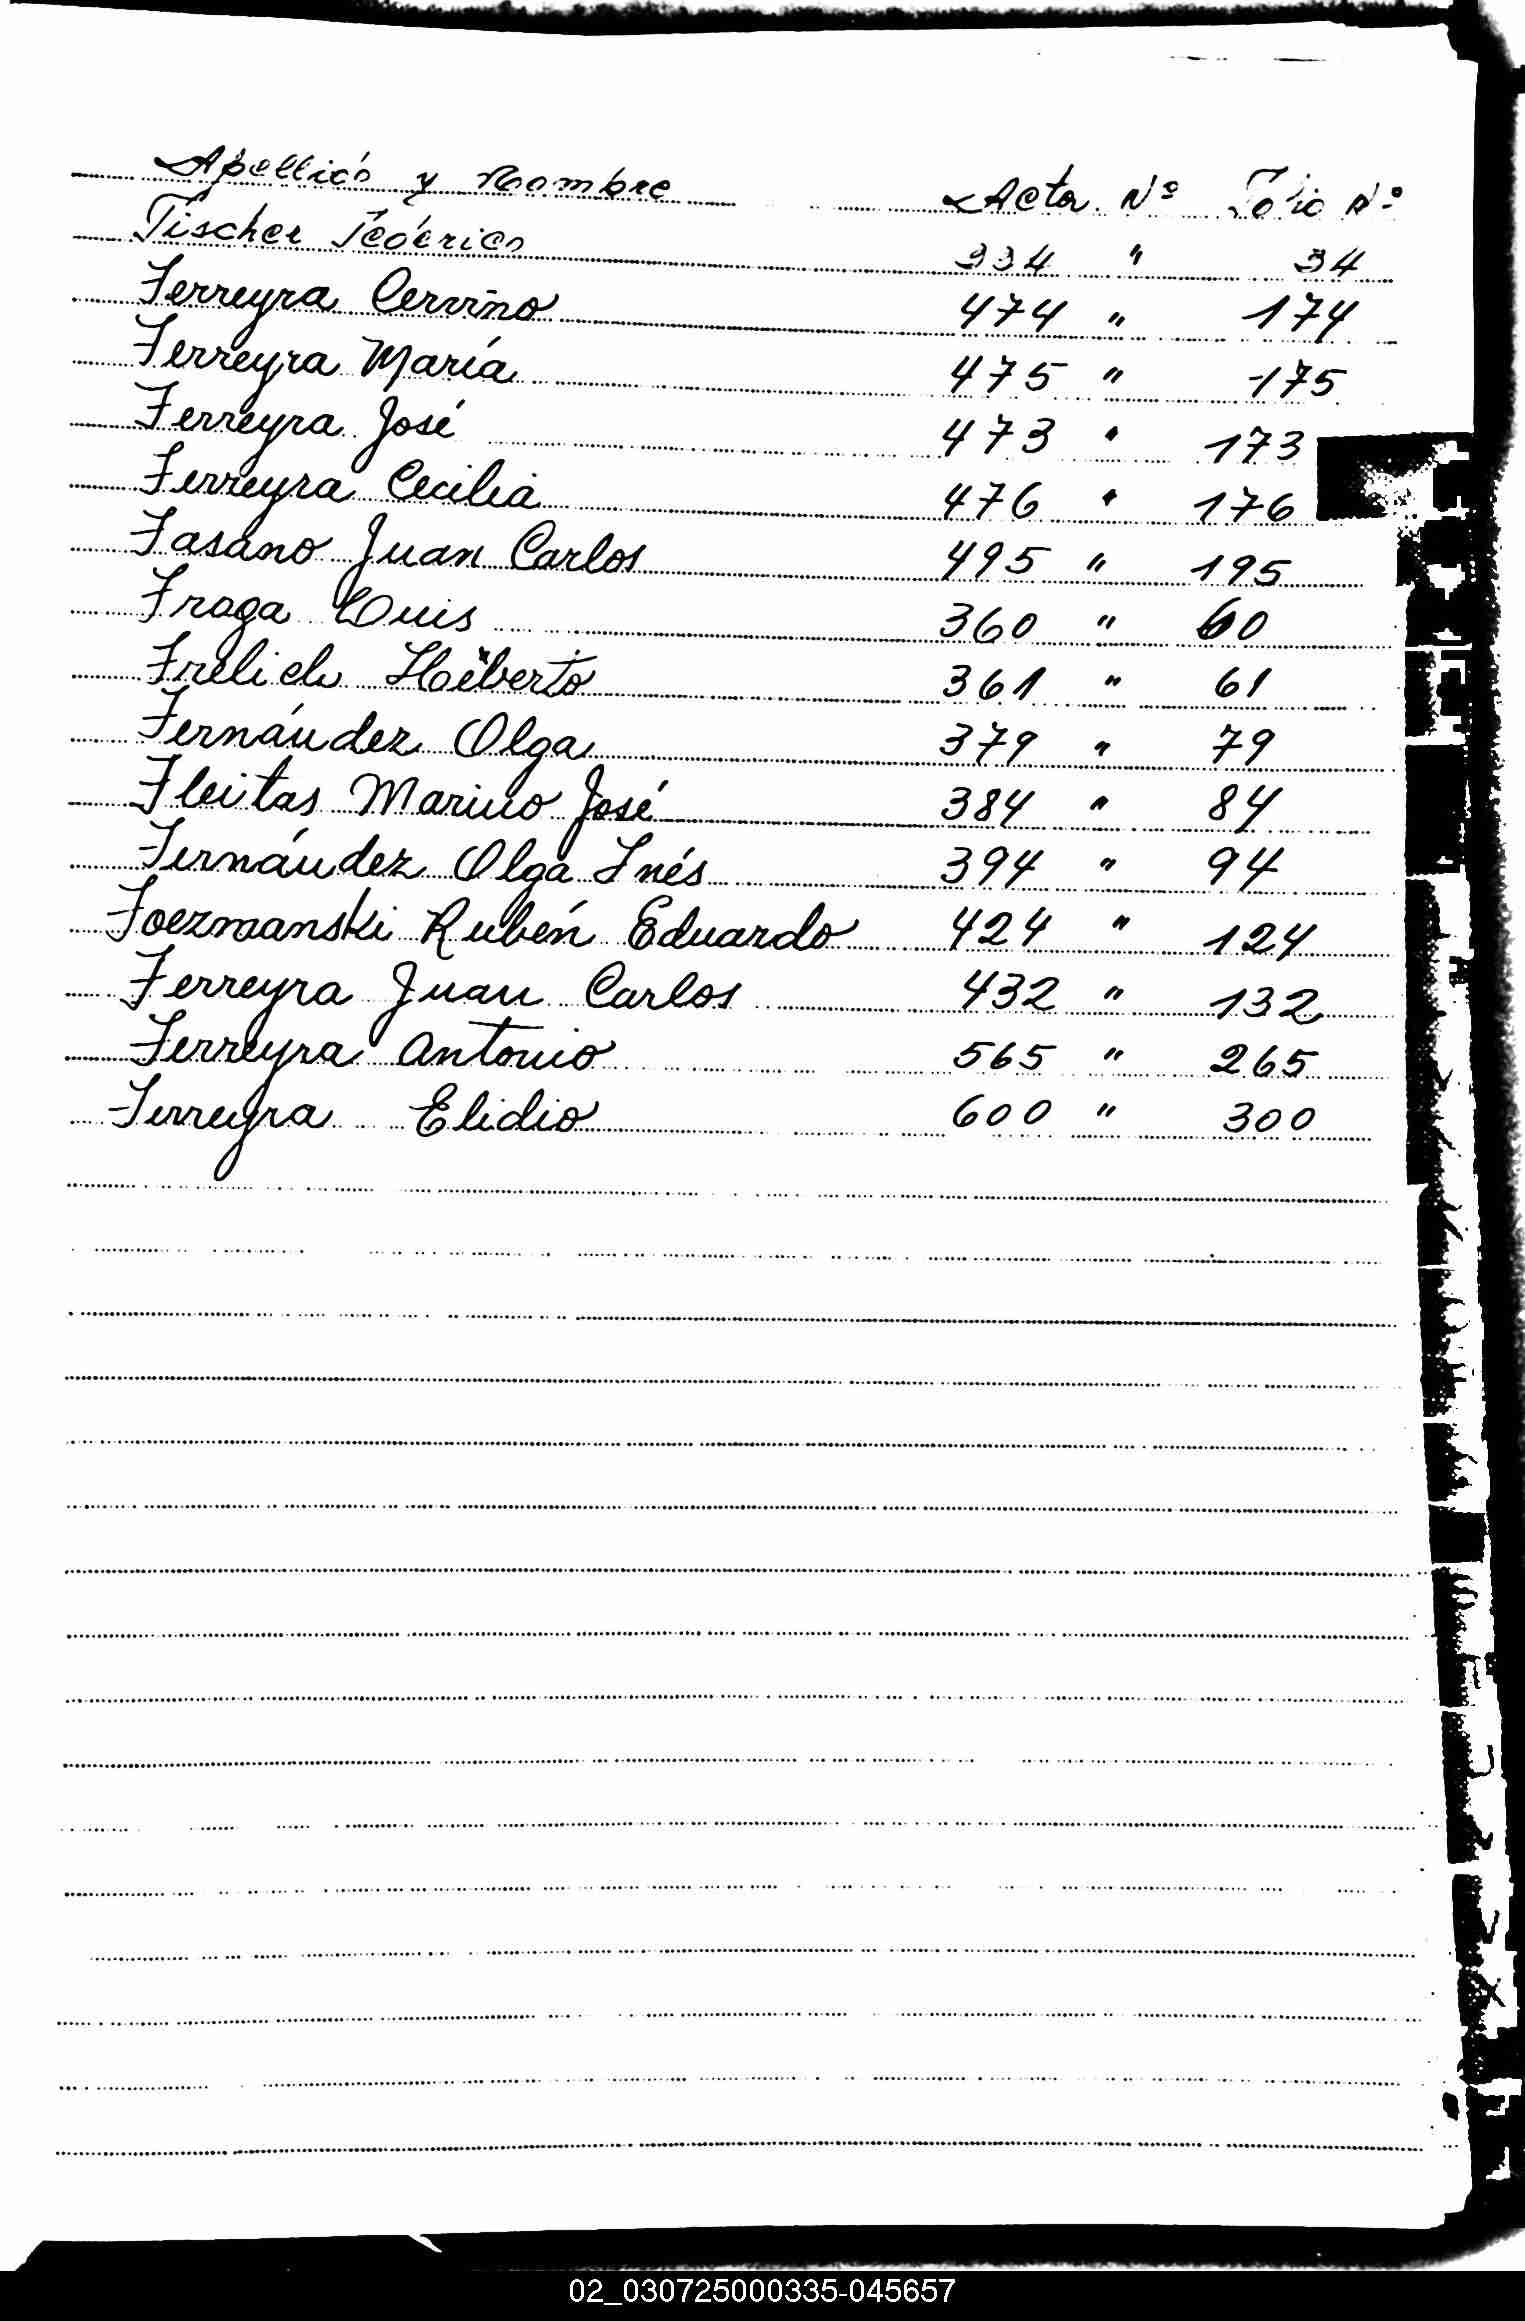 Apellido y Nombre Acta Nº Folio Nº
Fischer Federico 334 " 34
Ferreyra Cerviño 474 " 174
Ferreyra María 475 " 175
Ferreyra José 473 " 173
Ferreyra Cecilia 476 " 176
Fasano Juan Carlos 495 " 195
Fraga Luis 360 " 60
Frelich Heberto 361 " 61
Fernández Olga 379 " 79
Fleitas Marino José 384 " 84
Fernández Olga Inés 394 " 94
Foezmanski Rubén Eduardo 424 " 124
Ferreyra Juan Carlos 432 " 132
Ferreyra Antonio 565 " 265
Ferreyra Elidio 600 " 300
02_030725000335-045657